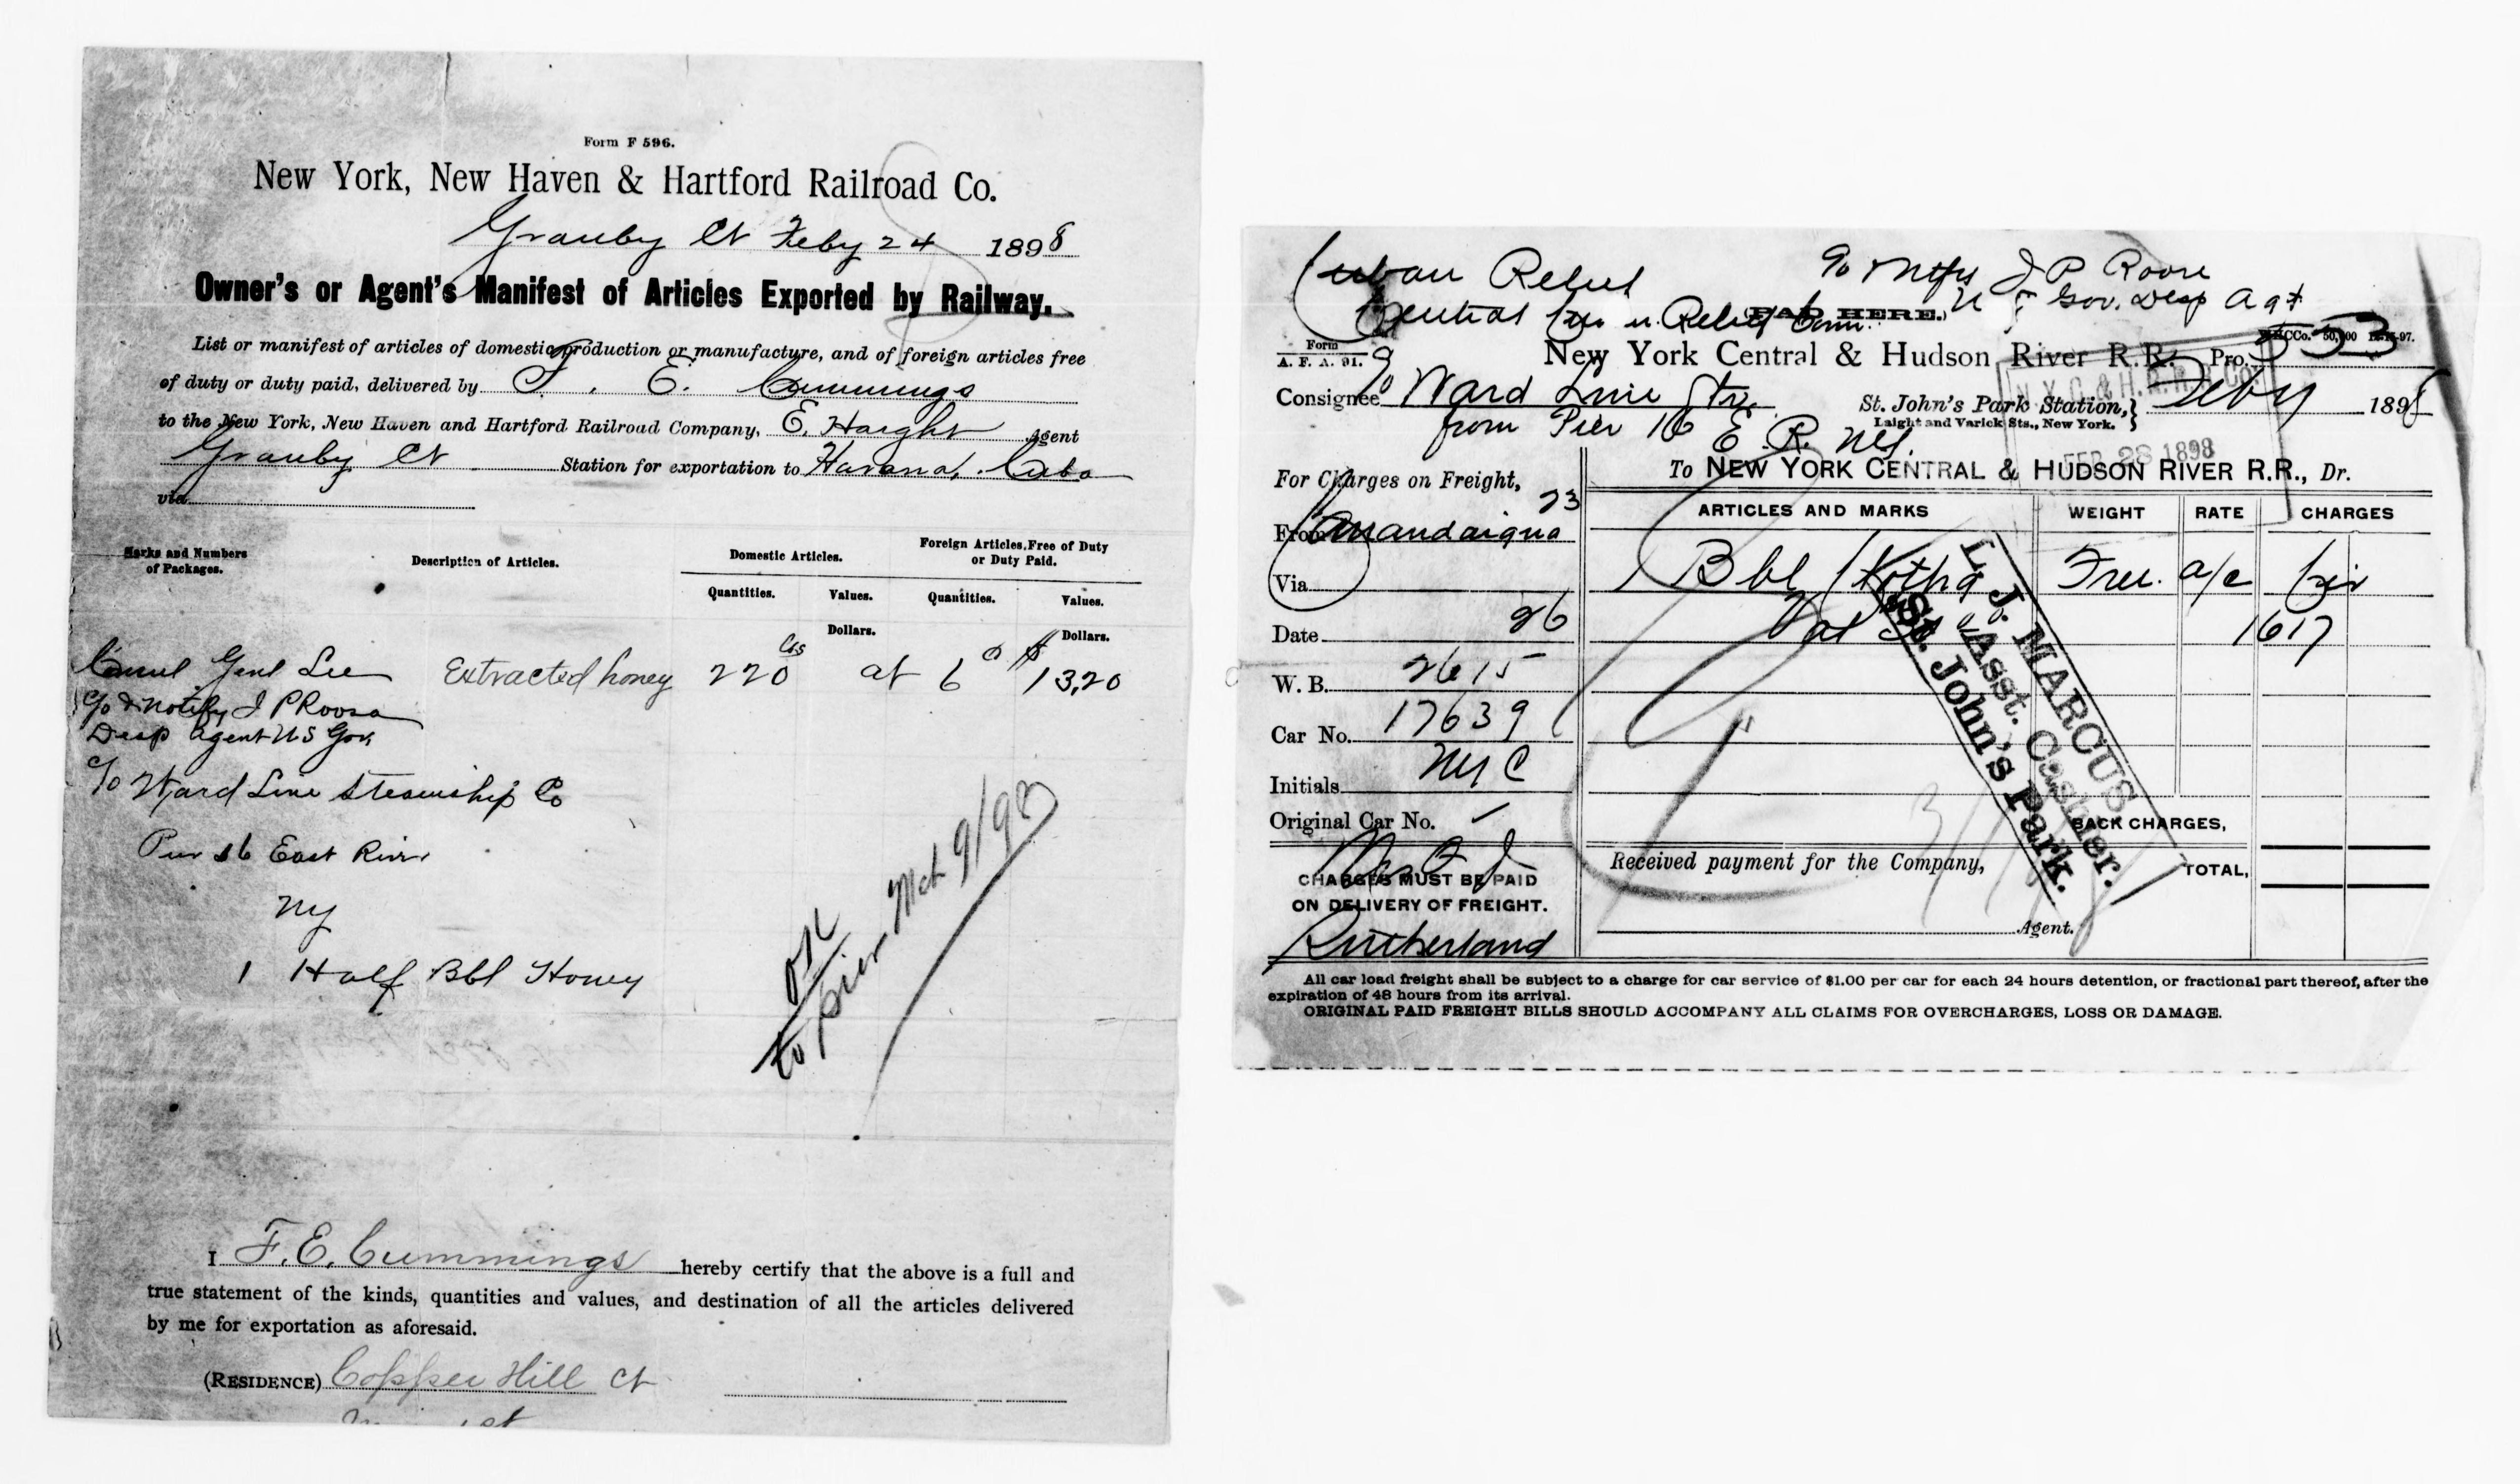 Form F 596.
New York, New Haven & Hartford Railroad Co.
Granby Ct Feby 24 1898
Owner's or Agent's Manifest of Articles Exported by Railway.
List or manifest of articles of domestic production or manufacture, and of foreign articles free
of duty or duty paid, delivered by F. E. Cummings
to the New York, New Haven and Hartford Railroad Company, E. Haight Agent
Granby Ct Station for exportation to Havana, Cuba
via
Marks and Numbers of Packages.
Description of Articles.
Domestic Articles.
Foreign Articles, Free of Duty or Duty Paid.
Quantities. Values. Quantities. Values.
Dollars. Dollars.
Consul Genl Lee Extracted honey 220 lbs at 6 $13,20
c/o & Notify J P Roosa
Desp Agent US Gov,
c/o Ward Line Steamship Co
Pier 16 East River
NY
1 Half Bbl Honey
OK
to pier Mch 9/98
I F. E. Cummings hereby certify that the above is a full and
true statement of the kinds, quantities and values, and destination of all the articles delivered
by me for exportation as aforesaid.
(RESIDENCE) Copper Hill Ct
Cuban Relief
c/o & Ntfy J P Roosa
U S Gov. Desp Agt
Central Cuban Relief Com.
PAID HERE.)
Form
A. F. A. 91.
50,000
New York Central & Hudson River R.R. Pro. 553
N. Y. C. & H. R. R. R. Co.
Consignee c/o Ward Line Str.
St. John's Park Station, Feby 1898
Laight and Varick Sts., New York.
from Pier 16 E. R. NY.
FEB 28 1898
For Charges on Freight,
To NEW YORK CENTRAL & HUDSON RIVER R.R., Dr.
23
From Canandaigua
ARTICLES AND MARKS WEIGHT RATE CHARGES
Via
1 Bbl Free. a/c
1617
Date 26
W. B. 2615
Car No. 17639
Initials NYC
Original Car No.
L. J. MARCUS
Asst. Cashier.
St. John's Park.
BACK CHARGES,
CHARGES MUST BE PAID
ON DELIVERY OF FREIGHT.
Received payment for the Company,
TOTAL,
Agent.
Rutherland
All car load freight shall be subject to a charge for car service of $1.00 per car for each 24 hours detention, or fractional part thereof, after the
expiration of 48 hours from its arrival.
ORIGINAL PAID FREIGHT BILLS SHOULD ACCOMPANY ALL CLAIMS FOR OVERCHARGES, LOSS OR DAMAGE.